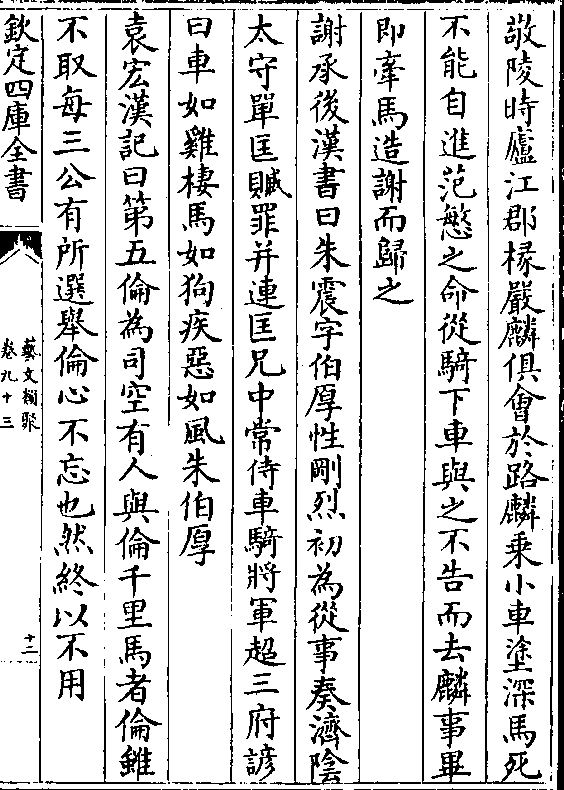 敬陵時廬江郡椽嚴麟俱會於路麟乗小車塗深馬死
不能自進范慜之命從騎下車與之不告而去麟事畢
即牽馬造謝而歸之
謝承後漢書曰朱震字伯厚性剛烈初為從事奏濟陰
太守單匡贓罪并連匡兄中常侍車騎將軍超三府諺
曰車如雞棲馬如狗疾惡如風朱伯厚
袁宏漢記曰第五倫為司空有人與倫千里馬者倫雖
不取每三公有所選舉倫心不忘也然終以不用
欽定四庫全書
藝文類聚
卷九十三
十二